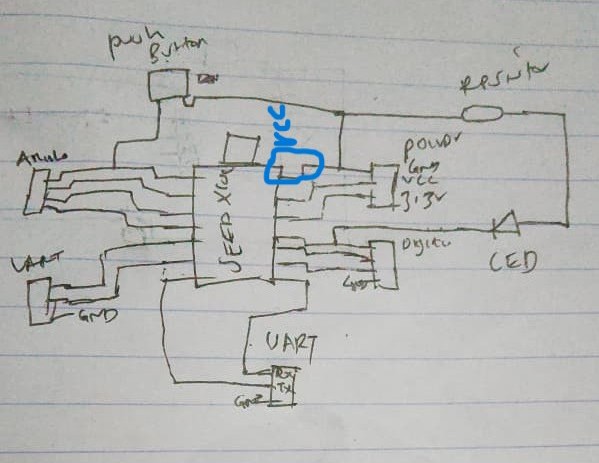 push
Button
Resistor
VCC
Analo
power
Gnd
VCC
3.3V
SEED XIAO
UART
GND
Digital
LED
Gnd
UART
Rx
Tx
Gnd